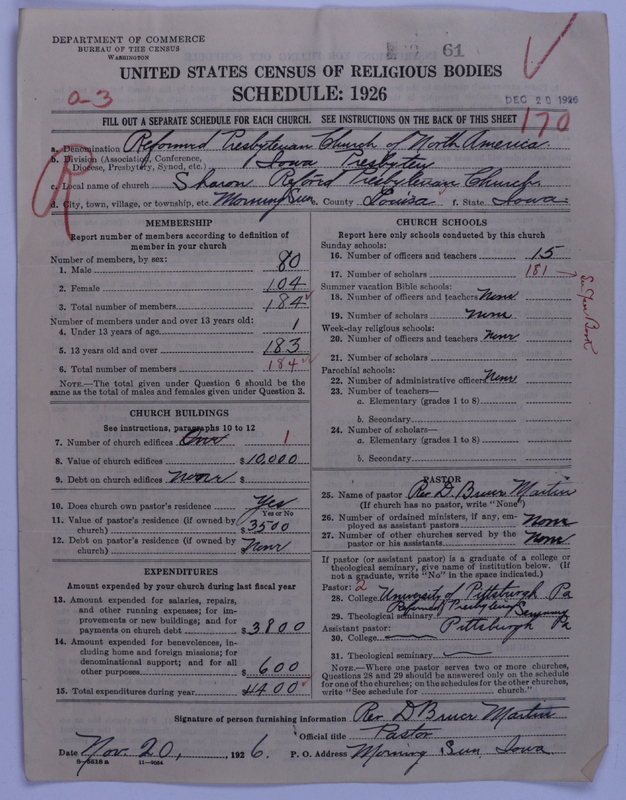 DEPARTMENT OF COMMERCE
BUREAU OF THE CENSUS
WASHINGTON
61
UNITED STATES CENSUS OF RELIGIOUS BODIES
SCHEDULE: 1926
0-3
DEC 20 1926
170
FILL OUT A SEPARATE SCHEDULE FOR EACH CHURCH. SEE INSTRUCTIONS ON THE BACK OF THIS SHEET
R
a. Denomination Reformed Presbyterian Church of North America
b. Division (Association, Conference, Diocese, Presbytery, Synod, etc.) Iowa Presbytery
c. Local name of church Sharon Reford Presbyterian Church
d. City, town, village, or township, etc. Morning Sun e. County Louisa f. State Iowa
MEMBERSHIP
Report number of members according to definition of
member in your church
Number of members, by sex:
1. Male 80
2. Female 104
3. Total number of members 184
Number of members under and over 13 years old:
4. Under 13 years of age 1
5. 13 years old and over 183
6. Total number of members 184
NOTE.—The total given under Question 6 should be
same as the total of males and females given under Question 3.
CHURCH BUILDINGS
See instructions, paragraphs 10 to 12
7. Number of church edifices One 1
8. Value of church edifices $10,000
9. Debt on church edifices None $
10. Does church own pastor's residence Yes
Yes or No
11. Value of pastor's residence (if owned by
church) $3500
12. Debt on pastor's residence (if owned by
church) None
EXPENDITURES
Amount expended by your church during last fiscal year
13. Amount expended for salaries, repairs,
and other running expenses; for im-
provements or new buildings; and for
payments on church debt $3800
14. Amount expended for benevolences, in-
cluding home and foreign missions; for
denominational support; and for all
other purposes $600
15. Total expenditures during year $4400
CHURCH SCHOOLS
Report here only schools conducted by this church
Sunday schools:
16. Number of officers and teachers 15
17. Number of scholars 181
See Year Book
Summer vacation Bible schools:
18. Number of officers and teachers None
19. Number of scholars None
Week-day religious schools:
20. Number of officers and teachers None
21. Number of scholars
Parochial schools:
22. Number of administrative officers None
23. Number of teachers—
a. Elementary (grades 1 to 8)
b. Secondary
24. Number of scholars—
a. Elementary (grades 1 to 8)
b. Secondary
PASTOR
25. Name of pastor Rev D. Bruce Martin
(If church has no pastor, write "None")
26. Number of ordained ministers, if any, em-
ployed as assistant pastors None
27. Number of other churches served by the
pastor or his assistants None
If pastor (or assistant pastor) is a graduate of a college or
theological seminary, give name of institution below. (If
not a graduate, write "No" in the space indicated.)
Pastor: 2
28. College University of Pittsburgh Pa
29. Theological seminary Reformed Presbyterian Seminary
Assistant pastor: Pittsburgh Pa
30. College
31. Theological seminary
NOTE.—Where one pastor serves two or more churches,
Questions 28 and 29 should be answered only on the schedule
for one of the churches; on the schedules for the other churches,
write "See schedule for church."
Signature of person furnishing information Rev. D Bruce Martin
Official title Pastor
Date Nov. 20, 1926. P. O. Address Morning Sun, Iowa
9-8518a 11-9084